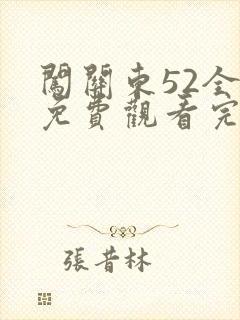 闖關東52全
免費觀看完
張昔林